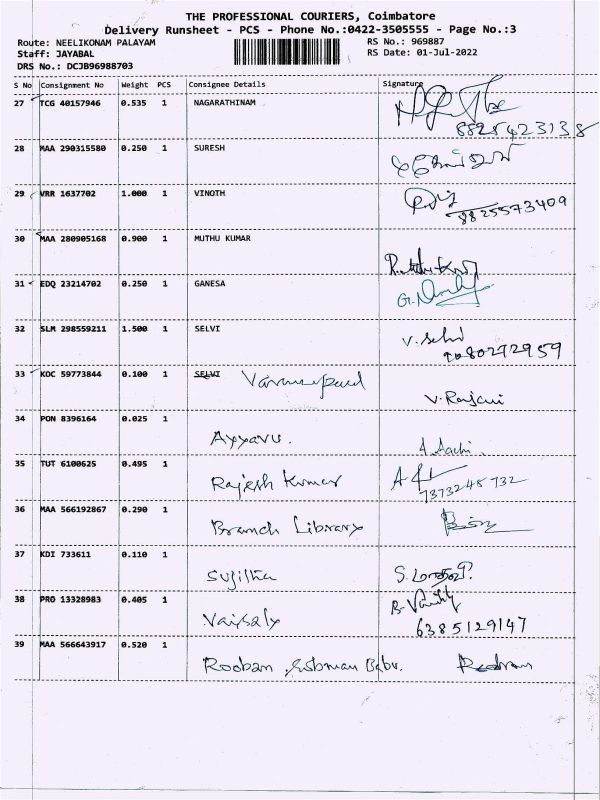 THE PROFESSIONAL COURIERS, Coimbatore
Delivery Runsheet - PCS - Phone No.:0422-3505555 - Page No.:3
Route: NEELIKONAM PALAYAM
RS No.: 969887
Staff: JAYABAL
RS Date: 01-Jul-2022
DRS No.: DCJB96988703
S No Consignment No Weight PCS Consignee Details Signature
27 TCG 40157946 0.535 1 NAGARATHINAM
8825423138
28 MAA 290315580 0.250 1 SURESH
29 VRR 1637702 1.000 1 VINOTH
8825573409
30 MAA 280905168 0.900 1 MUTHU KUMAR
31 EDQ 23214702 0.250 1 GANESA
32 SLM 298559211 1.500 1 SELVI
V. Selvi
9080272959
33 KOC 59773844 0.100 1 SELVI
V. Rajani
34 PON 8396164 0.025 1
Ayyavu.
35 TUT 6100625 0.495 1
Rajesh Kumar
7373248732
36 MAA 566192867 0.290 1
Branch Library
37 KDI 733611 0.110 1
Sujitha
38 PRO 13328983 0.405 1
Vaisaly
6385129147
39 MAA 566643917 0.520 1
Rooban Babu.